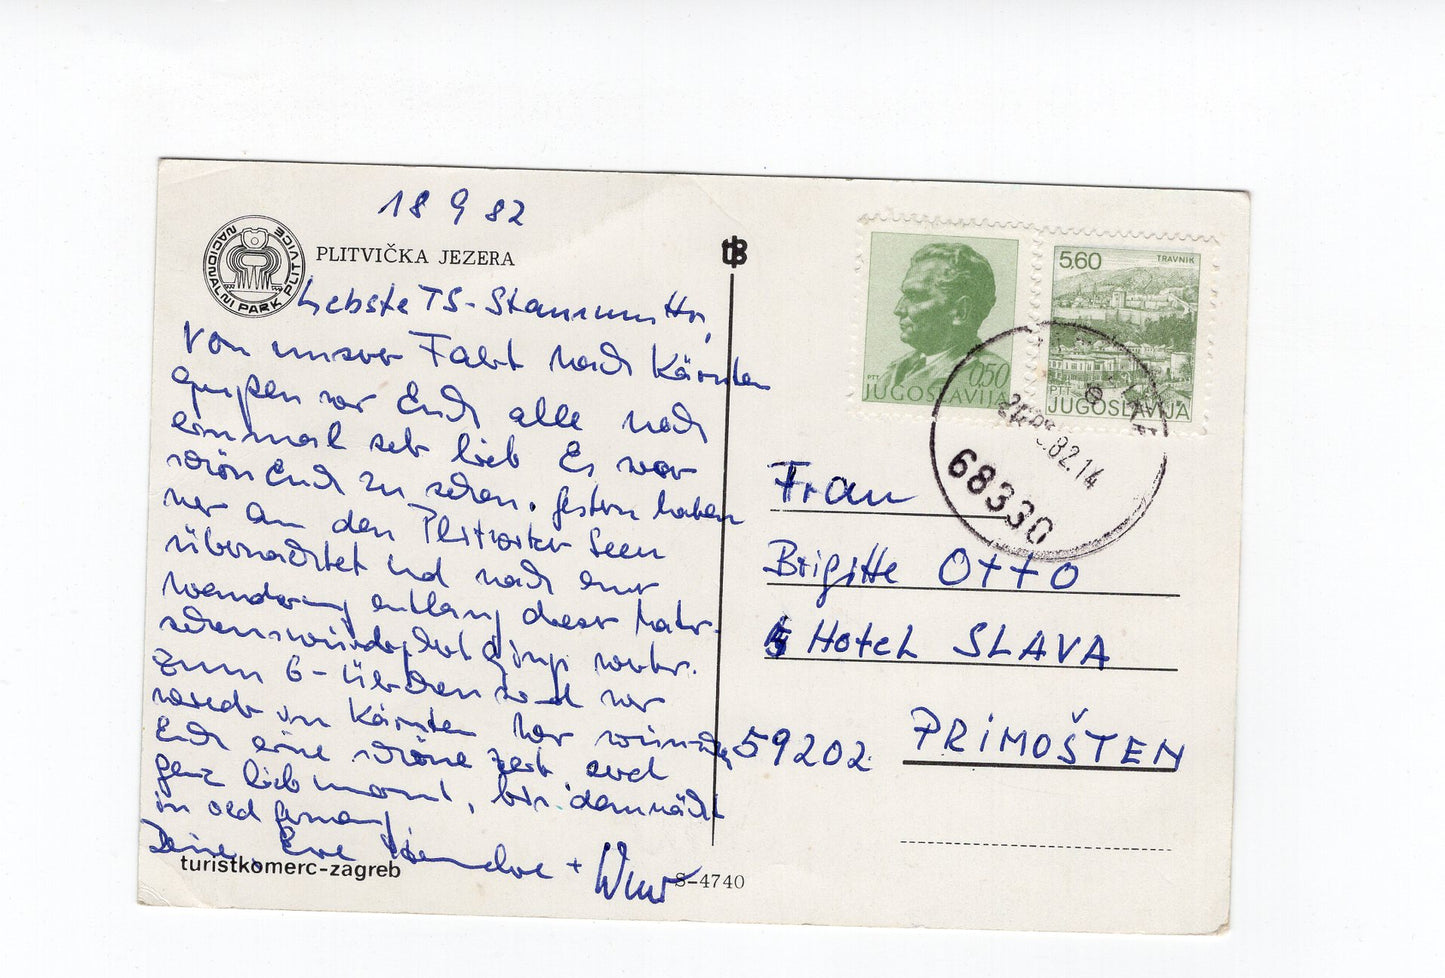 18 9 82
NACIONALNI PARK PLITVICE
PLITVIČKA JEZERA
Liebste TS-Stammutter,
Von unserer Fahrt nach Kärnten
grüßen wir Euch alle noch
einmal sehr lieb Es war
schön Euch zu sehen. gestern haben
wir an den Plitvicer Seen
übernachtet und nach einer
wanderung entlang dieser Natur-
sehenswürdigkeit ging's weiter.
zum 6-Uhr sind wir
wieder in Kärnten Wir wünschen
Euch eine schöne Zeit und
ganz lieb, bis demnächst
in old Germany
Deine +
turistkomerc-zagreb
S-4740
0,50
PTT
JUGOSLAVIJA
5,60
TRAVNIK
PTT
JUGOSLAVIJA
82.14
68330
Frau
Brigitte OTTO
Hotel SLAVA
59202 PRIMOŠTEN